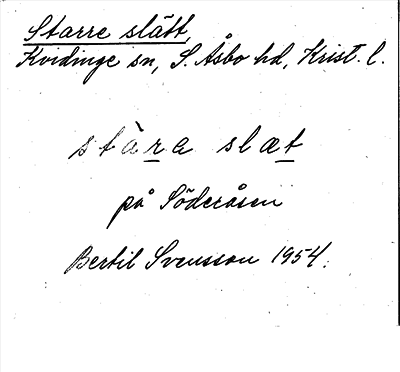 Starre slätt,
Kvidinge sn, S. Åsbo hd, Krist. l.
stàra slæt
på Söderåsen
Bertil Svensson 1954.